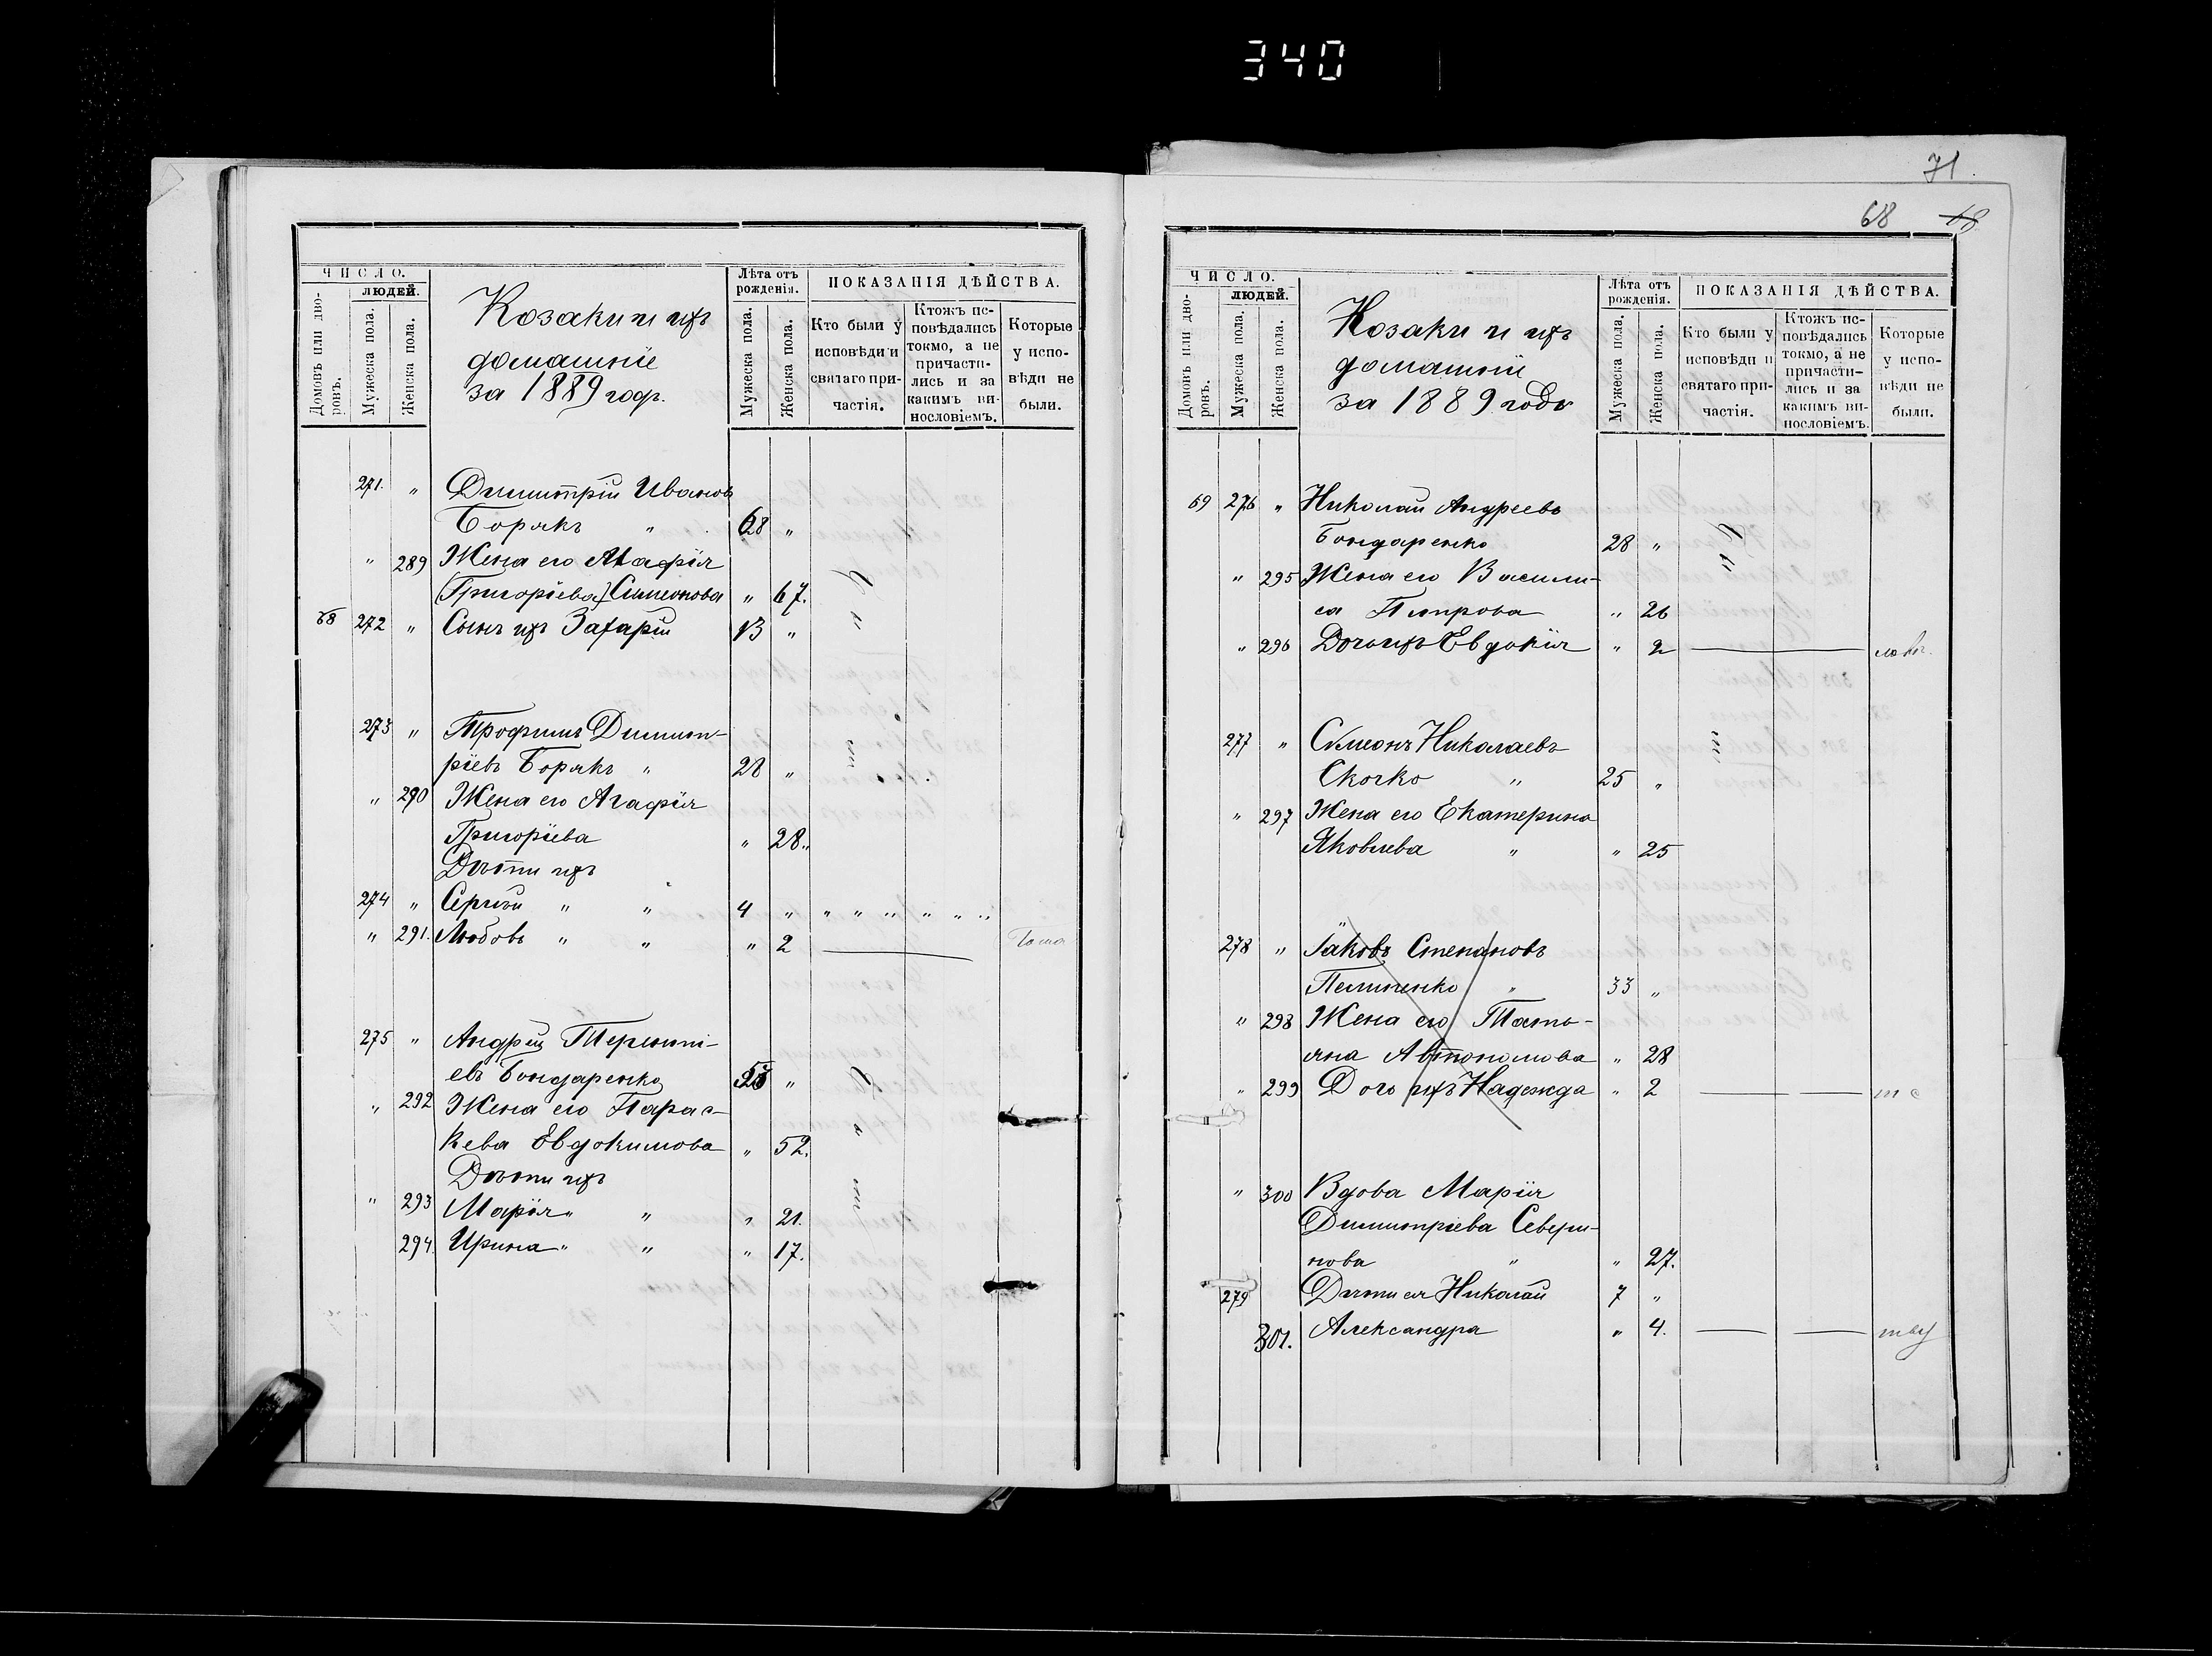 340
ЧИСЛО.
ЛЮДЕЙ.
Домовъ или дворовъ.
Мужеска пола.
Женска пола.
Козаки и ихъ
домашніе
за 1889 годъ.
Лѣта отъ рожденія.
Мужеска пола.
Женска пола.
ПОКАЗАНІЯ ДѢЙСТВА.
Кто были у исповѣди и святаго причастія.
Ктожъ исповѣдались токмо, а не причастились и за какимъ винословіемъ.
Которые у исповѣди не были.
271. " Димитрій Ивановъ
Борякъ " 68 "
" 289 Жена его Агафія
(Григоріева) Симеонова " 67.
68 272 " Сынъ ихъ Захарій 13 "
273 " Трофимъ Димит-
ріевъ Борякъ " 28 "
" 290 Жена его Агафія
Григоріева " 28 "
Дѣти ихъ
274 " Сергій " " 4 " " " " " " "
" 291. Любовь " " " 2
275 " Андрей Теренті-
евъ Бондаренко "
" 292 Жена его Парас-
кева Евдокимова " 52.
Дѣти ихъ
" 293 Марія " " " 21.
294. Ирина " " " 17.
71.
68 68
ЧИСЛО.
ЛЮДЕЙ.
Домовъ или дворовъ.
Мужеска пола.
Женска пола.
Козаки и ихъ
домашніе
за 1889 годъ
Лѣта отъ рожденія.
Мужеска пола.
Женска пола.
ПОКАЗАНІЯ ДѢЙСТВА.
Кто были у исповѣди и святаго причастія.
Ктожъ исповѣдались токмо, а не причастились и за какимъ винословіемъ.
Которые у исповѣди не были.
69 276 " Николай Андреевъ
Бондаренко 28 "
" 295 Жена его Васили-
са Петрова " 26
" 296 Дочь ихъ Евдокія " 2
277 " Сѵмеонъ Николаевъ
Скочко " 25 "
" 297 Жена его Екатерина
Яковлева " " 25
278 " Іаковъ Степановъ
Пелипенко " 33 "
" 298 Жена его Тать-
яна Автономова " 28
" 299 Дочь ихъ Надежда " 2
" 300 Вдова Марія
Димитріева Севери-
нова " " 27.
279 Дѣти ея Николай 7 "
301. Александра " 4.